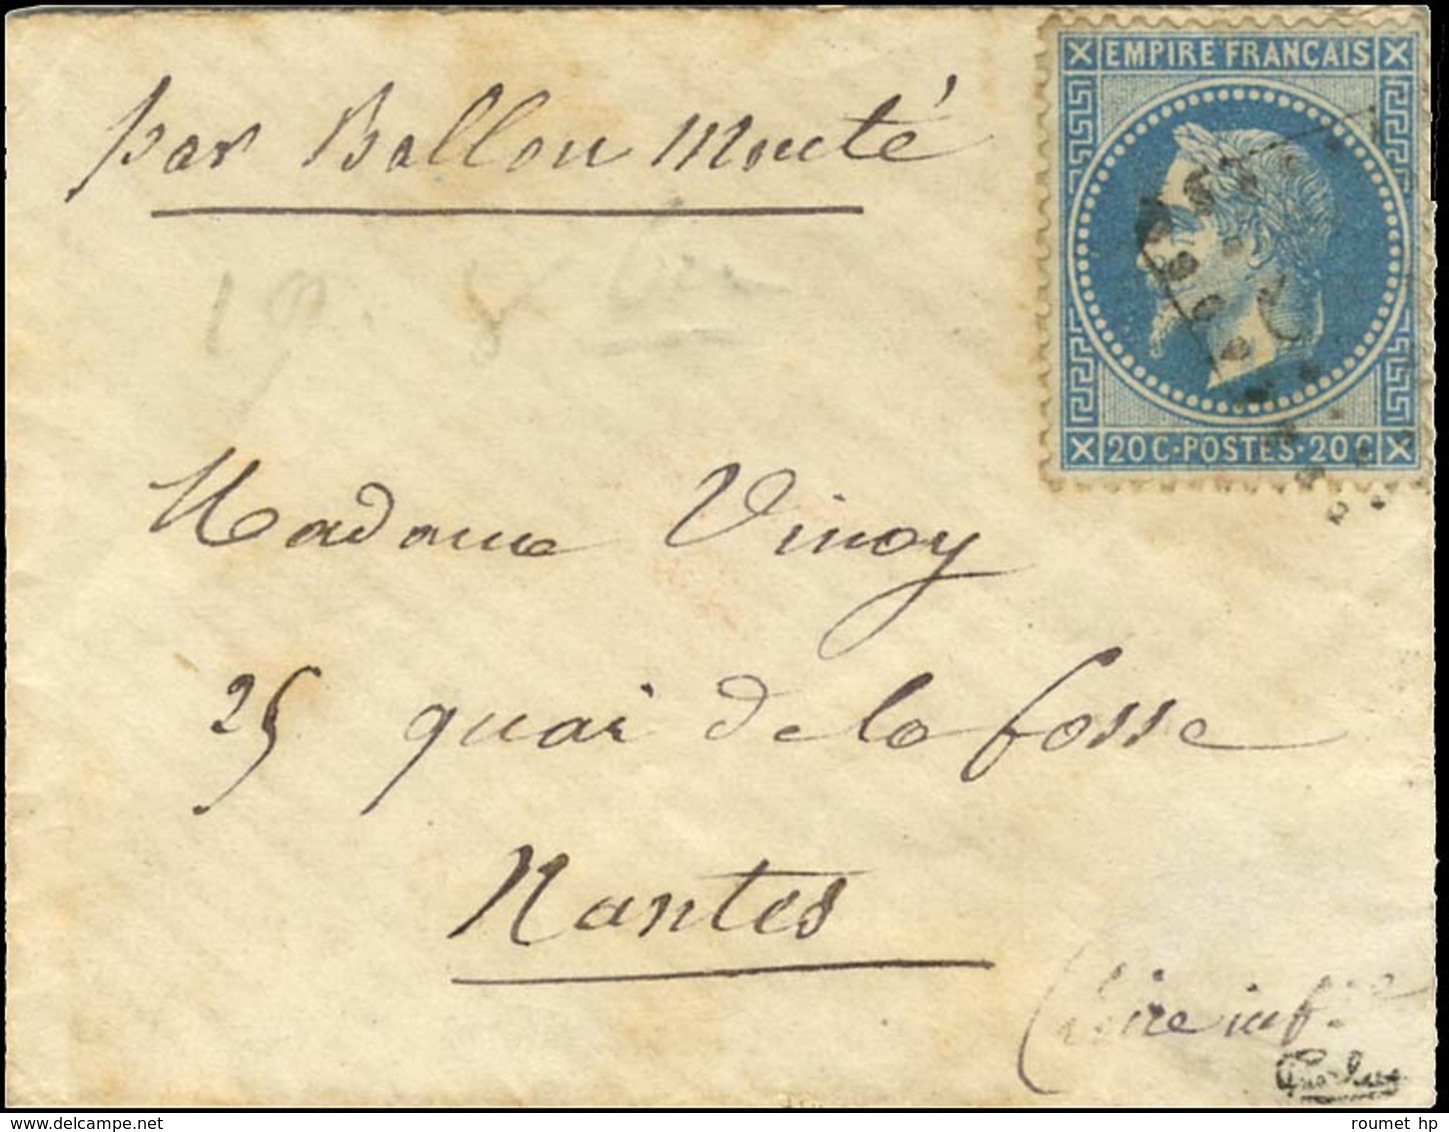 EMPIRE FRANCAIS
par Ballon Monté
19. 8
20 C·POSTES·20 C
Madame Vinoy
25 quai de la fosse
Nantes
(Loire infre
roumet hp